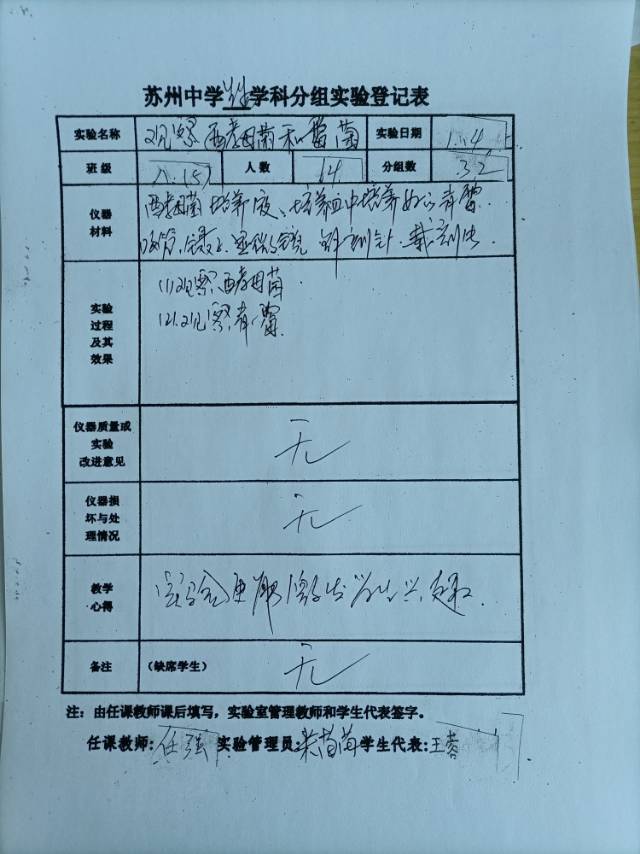 苏州中学生物学科分组实验登记表
实验名称 观察酵母菌和霉菌 实验日期 1.4
班级 八(5) 人数 64 分组数 32
仪器材料 酵母菌培养液、培养皿中培养好的青霉.
吸管、显微镜 解剖针、载玻片
实验过程及其效果
(1)观察酵母菌
(2)观察青霉
仪器质量或实验改进意见 无
仪器损坏与处理情况 无
教学心得 实验更能激发学生兴趣.
备注 (缺席学生) 无
注：由任课教师课后填写，实验室管理教师和学生代表签字。
任课教师: 任强 实验管理员: 菊 学生代表: 王蓉